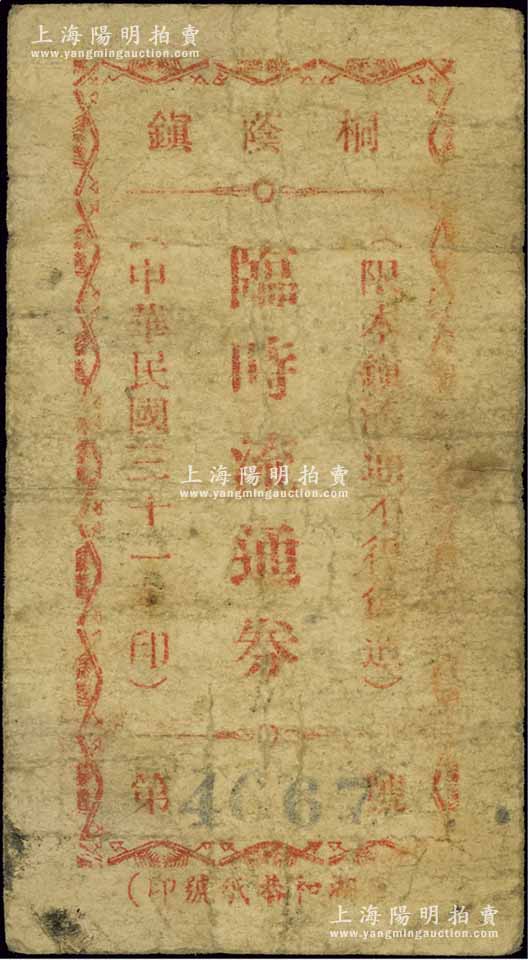 上海陽明拍賣
www.yangmingauction.com
桐蔭鎮
(限本鎮流通不得伪造)
臨時流通券
(中華民國三十一年印)
第4067號
和恭紙號印)
上海陽明拍賣
www.yangmingauction.com
上海陽明拍賣
www.yangmingauction.com